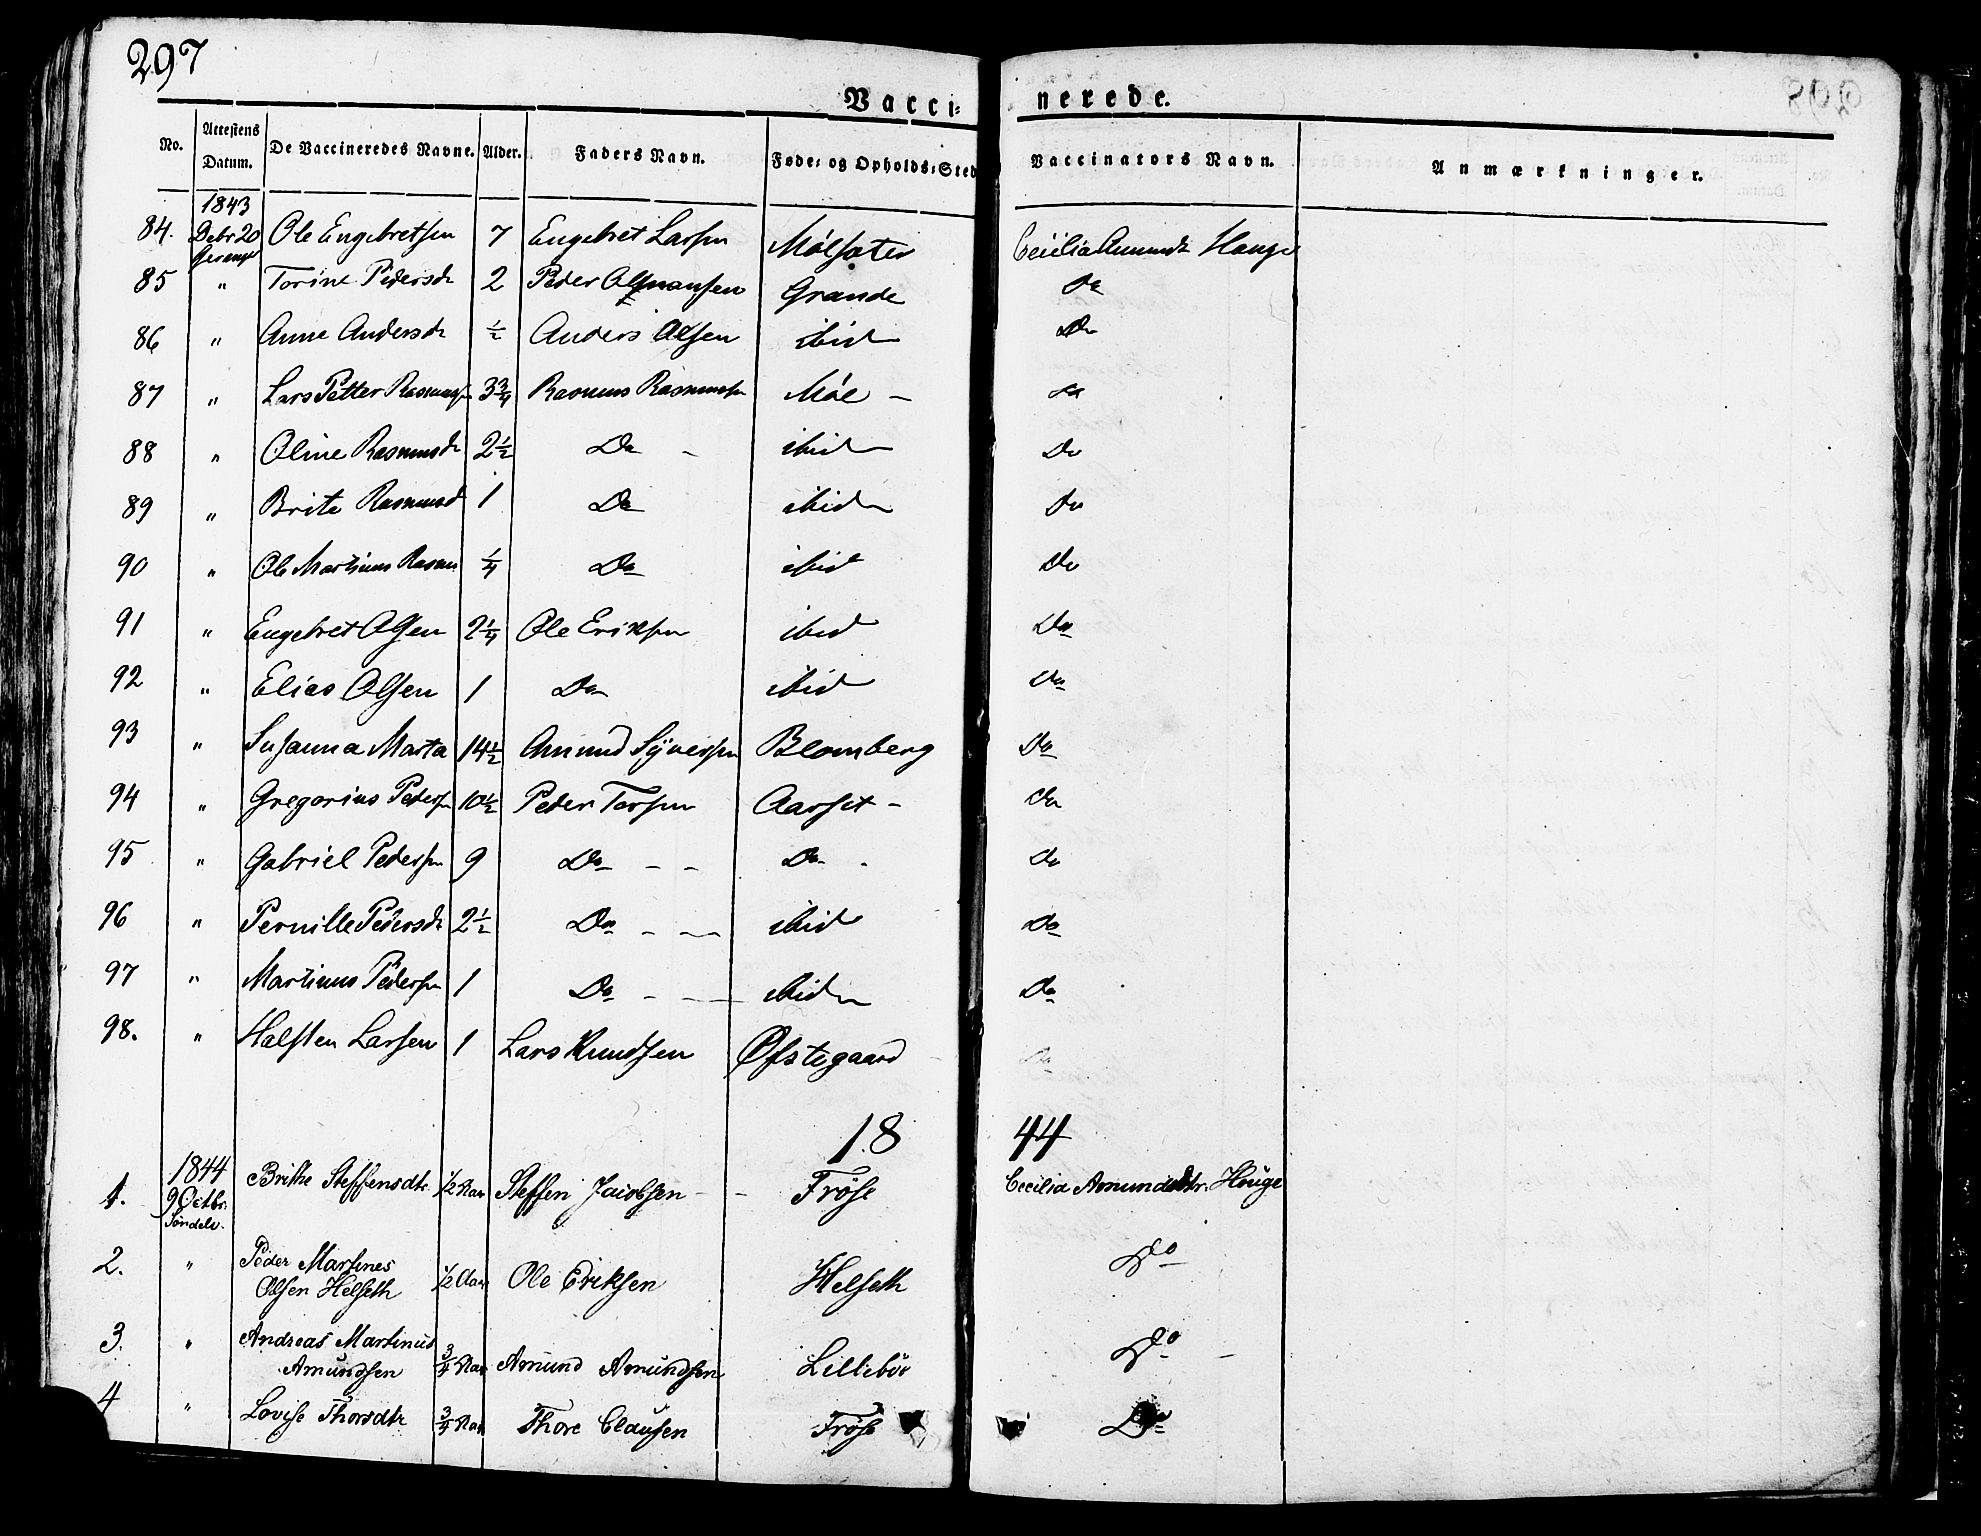 297
Vacci-nerede.
No. Attestens Datum. De Vaccineredes Navne. Alder. Faders Navn. Føde- og Opholds-Sted Vaccinators Navn. Anmærkninger.
1843
84. Debr 20 Ole Engebretsen 7 Engebret Larsen Mólsæter Cecilia Amunds Hauge
85 " Torine Pedersdr 2 Peder Grande do
86 " Anne Andersdr 1/2 Anders Olsen ibid Do
87 " Lars Petter Rasmussn 3 3/4 Rasmus Rasmussen Móle - do
88 " Oline Rasmusdr 2 1/2 Do - ibid Do
89 " Brite Rasmusd 1 Do ibid do
90 " Ole Martinus Rasmu 1/4 Do ibid Do
91 " Engebret Olsen 2 1/4 Ole Eriksen ibid Do
92 " Elias Olsen 1 Do ibid Do
93 " Susanna Marta 14 1/2 Amund Syversen Blomberg Do
94 " Gregorius Pedersn 10 1/2 Peder Torsen Aarset - do
95 " Gabriel Pedersen 9 Do - - Do - do
96 " Pernille Pedersdr 2 1/2 Do - - ibid do
97 " Martinus Pedersen 1 Do - - ibid Do
98. " Halsten Larsen 1 Lars Knudsen Øfstegaard Do
18 44
1844
1. 9 Octbr. Brithe Steffensdtr. 1/2 Aar Steffen Jacobsen - - Fröse Cecilia Amundsdtr. Houge
2. " Peder Martines
Olsen Helseth 1/2 Aar Ole Eriksen Helseth Do
3. " Andreas Martinus
Amundsen 3/4 Aar Amund Amundsen Lilleböe Do -
4 " Lovise Thorsdtr 3/4 Aar Thore Clausen Fröse Do